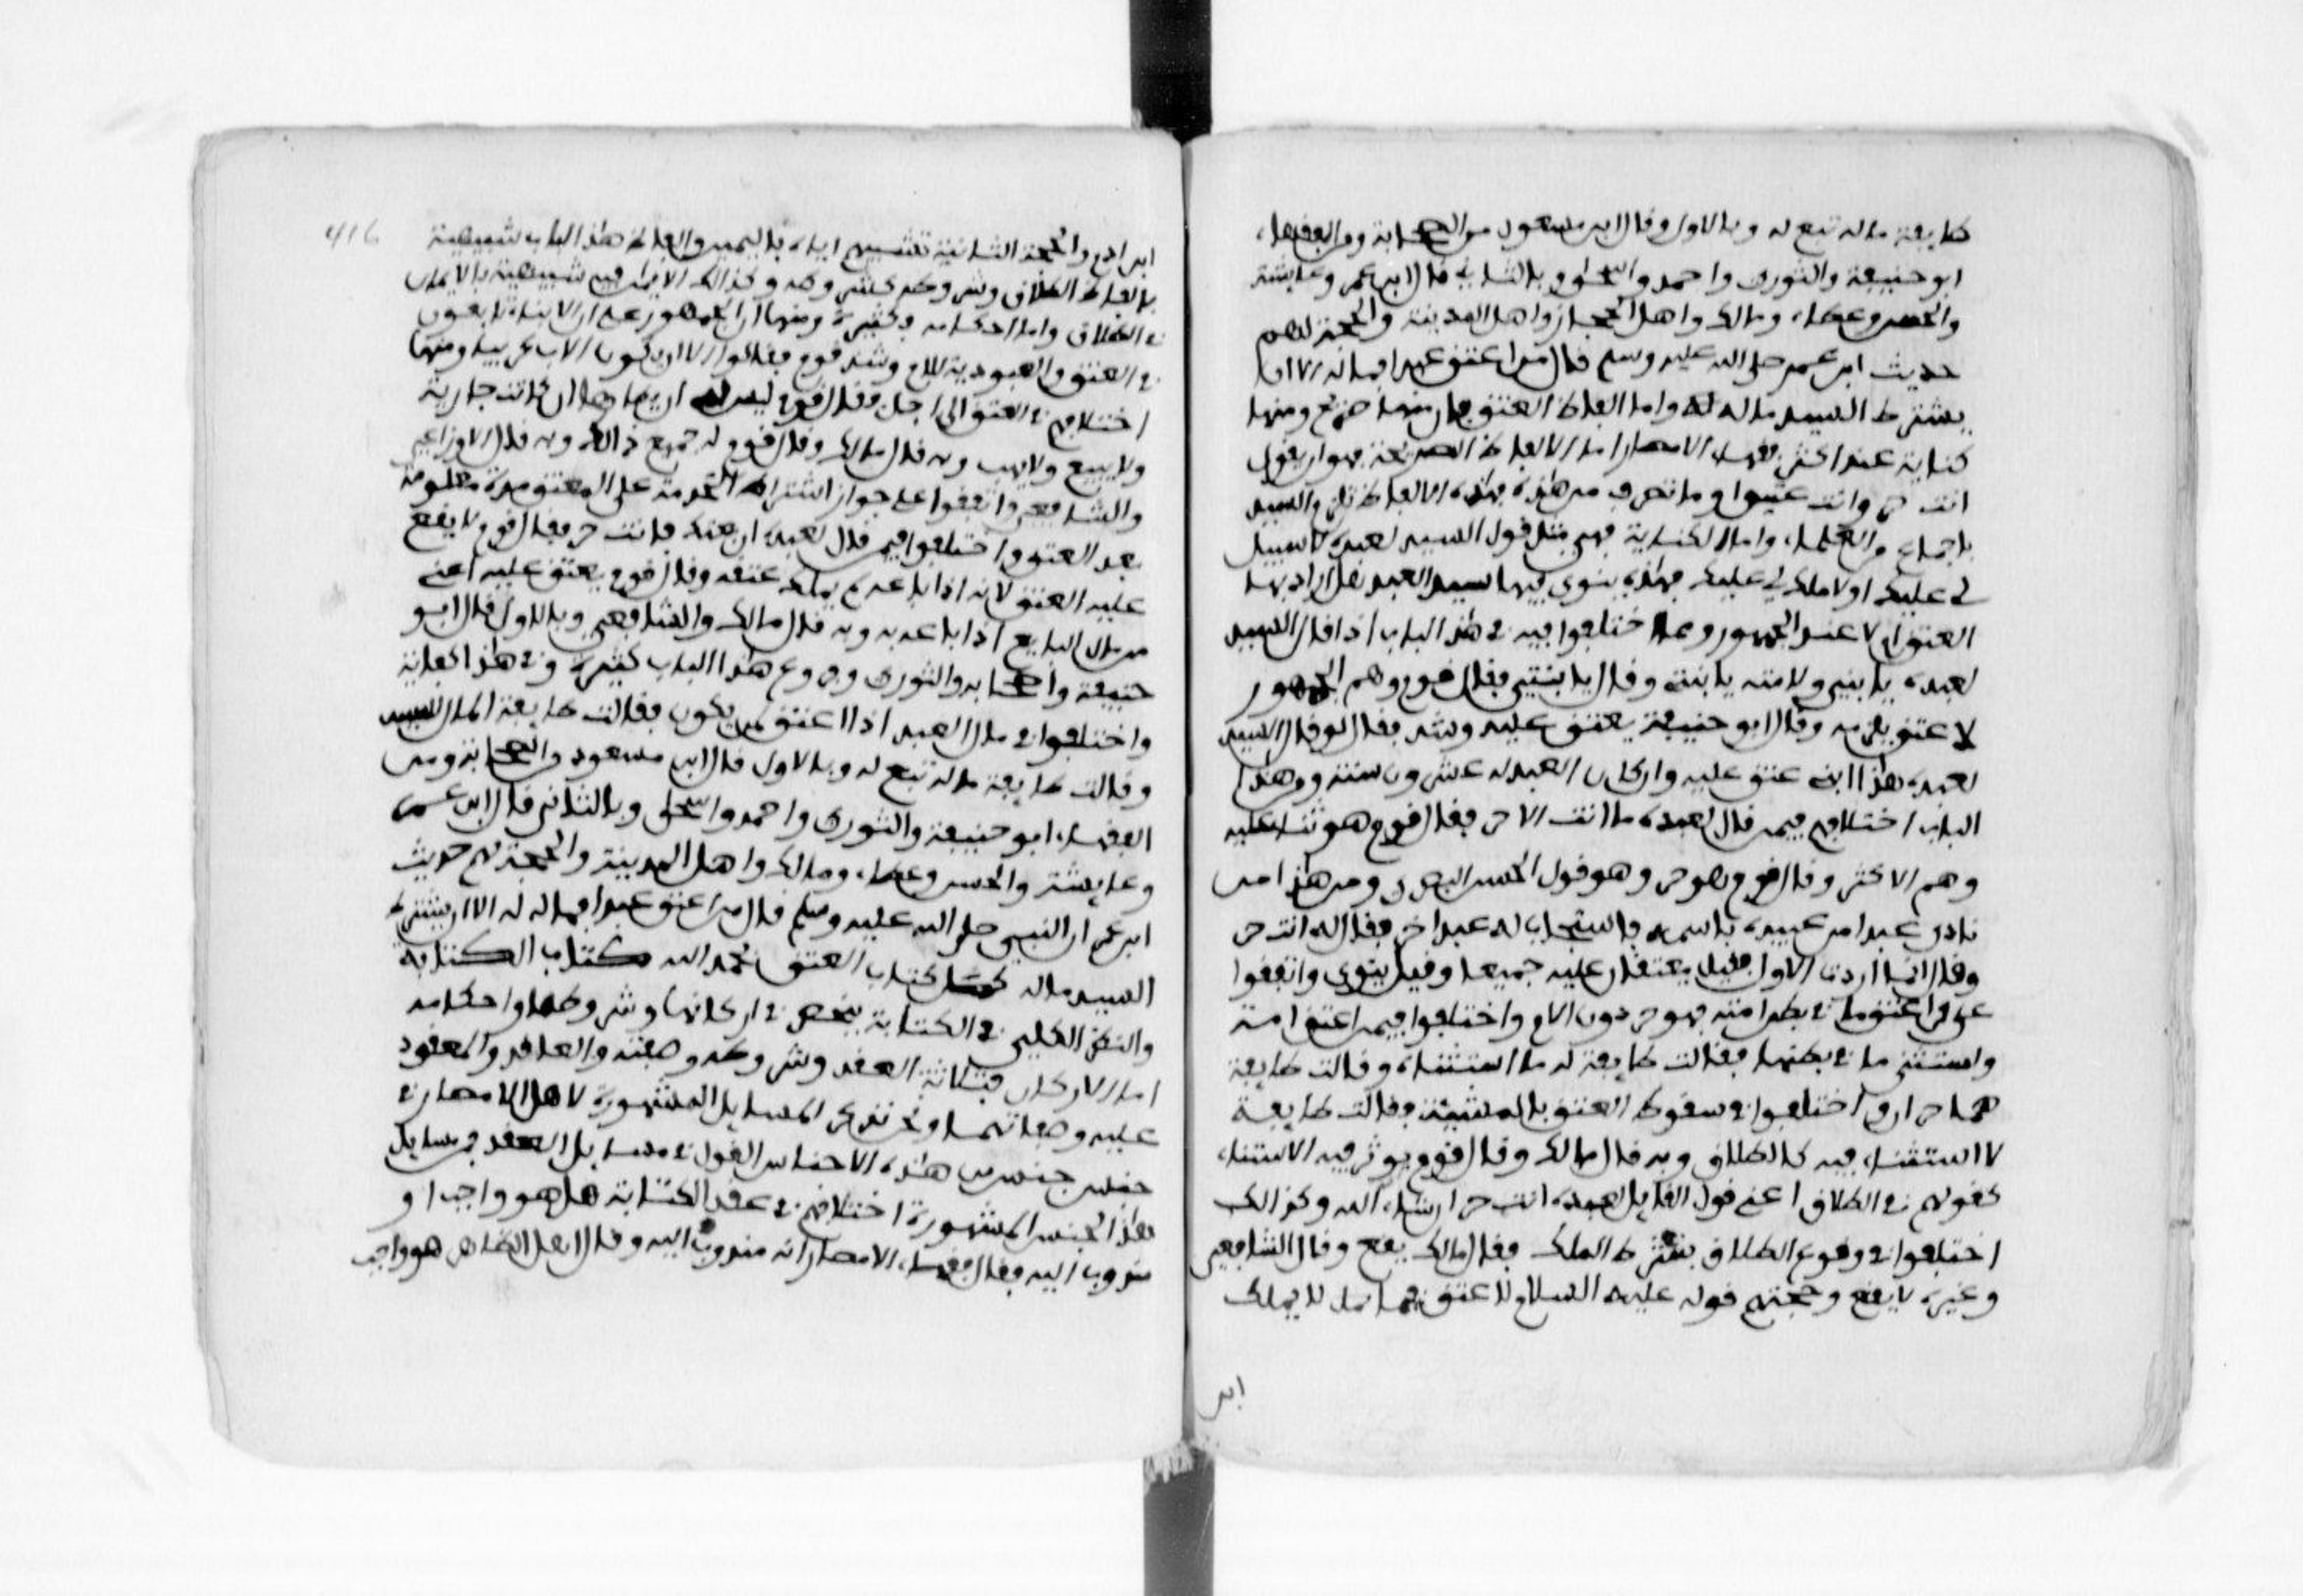 طايفة ماله تبع له وبالاول قال ابن مسعود من الصحابة ومن الفقهاء
ابو حنيفة والثوري واحمد واسحق وبالثاني قال ابن عمر وعايشة
والحسن وعطاء ومالك واهل الحجاز واهل المدينة والحجة لهم
حديث ابن عمر صلى الله عليه وسلم قال من اعتق عبدا فماله له الا ان
يشترط السيد ماله له واما الفاظ العتق فان منها صريح ومنها
كناية عند اكثر فقهاء الامصار اما الالفاظ الصريحة فهو ان يقول
انت حر وانت عتيق وما تصرف من هذه فهذه الالفاظ تلزم السيد
باجماع من العلماء واما الكناية فهي مثل قول السيد لعبده لا سبيل
لي عليك او لا ملك لي عليك فهذه ينوى فيها سيد العبد هل اراد بها
العتق ام لا عند الجمهور ومما اختلفوا فيه في هذا الباب اذا قال السيد
لعبده يا بني ولامته يا بنتي وقال يا بنتي فقال قوم وهم الجمهور
لا عتق يلزمه وقال ابو حنيفة يعتق عليه وشد فقال لو قال السيد
لعبده هذا ابني عتق عليه وان كان العبد له عشرون سنة ومن هذا
الباب اختلافهم فيمن قال لعبده ما انت الا حر فقال قوم هو ثناء عليه
وهم الاكثر وقال قوم هو حر وهو قول الحسن البصري ومن هذا من
نادى عبدا من عبيده باسمه فاستجاب له عبد اخر فقال له انت حر
وقال انما اردت الاول فقيل يعتقان عليه جميعا وقيل ينوى واتفقوا
على من اعتق ما في بطن امته فهو حر دون الام واختلفوا فيمن اعتق امة
واستثنى ما في بطنها فقالت طايفة له ما استثناه وقالت طايفة
هما حران واختلفوا في سقوط العتق بالمشيئة فقالت طايفة
لا استثناء فيه كالطلاق وبه قال مالك وقال قوم يوثر فيه الاستثناء
كقولهم في الطلاق اعني قول القايل لعبده انت حر ان شاء الله وكذالك
اختلفوا في وقوع الطلاق بشرط الملك فقال مالك يقع وقال الشافعي
وغيره لا يقع وحجتهم قوله عليه السلام لا عتق فيما لا يملك
ابن
416
ابن ادم والحجة الثانية تشبيههم اياه باليمين والفاظ هذا الباب شبيهة
بالفاظ الطلاق وشروطه كشروطه وكذالك الايمان فيه شبيهة بالايمان
في الطلاق واما احكامه فكثيرة ومنها ان الجمهور على ان الابناء تابعون
في العتق والعبودية للام وشد قوم فقالوا الا ان يكون الاب عربيا ومنها
اختلافهم في العتق الى اجل فقال قوم ليس له ان يطاها ان كانت جارية
ولا يبيع ولا يهب وبه قال مالك وقال قوم له جميع ذالك وبه قال الاوزاعي
والشافعي واتفقوا على جواز اشتراط الخدمة على المعتق مدة معلومة
بعد العتق واختلفوا فيمن قال لعبده ان بعتك فانت حر فقال قوم لا يقع
عليه العتق لانه اذا باعه لم يملك عتقه وقال قوم يعتق عليه اعني
من مال البايع اذا باعه وبه قال مالك والشافعي وبالاول قال ابو
حنيفة واصحابه والثوري وفروع هذا الباب كثيرة وفي هذا كفاية
واختلفوا في مال العبد اذا اعتق لمن يكون فقالت طايفة المال للسيد
وقالت طايفة ماله تبع له وبالاول قال ابن مسعود من الصحابة ومن
الفقهاء ابو حنيفة والثوري واحمد واسحق وبالثاني قال ابن عمر
وعايشة والحسن وعطاء ومالك واهل المدينة والحجة لهم حديث
ابن عمر ان النبي صلى الله عليه وسلم قال من اعتق عبدا فماله له الا ان يشترط
السيد ماله كمل كتاب العتق بحمد الله كتاب الكتابة
والنظر الكلي في الكتابة ينحصر في اركانها وشروطها واحكامه
اما الاركان فثلاثة العقد وشروطه وصفته والعاقد والمعقود
عليه وصفاتهما ونحن نذكر المسايل المشهورة لاهل الامصار في
جنس جنس من هذه الاجناس القول في مسايل العقد فمن مسايل
هذا الجنس المشهورة اختلافهم في عقد الكتابة هل هو واجب او
مندوب اليه فقال فقهاء الامصار انه مندوب اليه وقال اهل الظاهر هو واجب